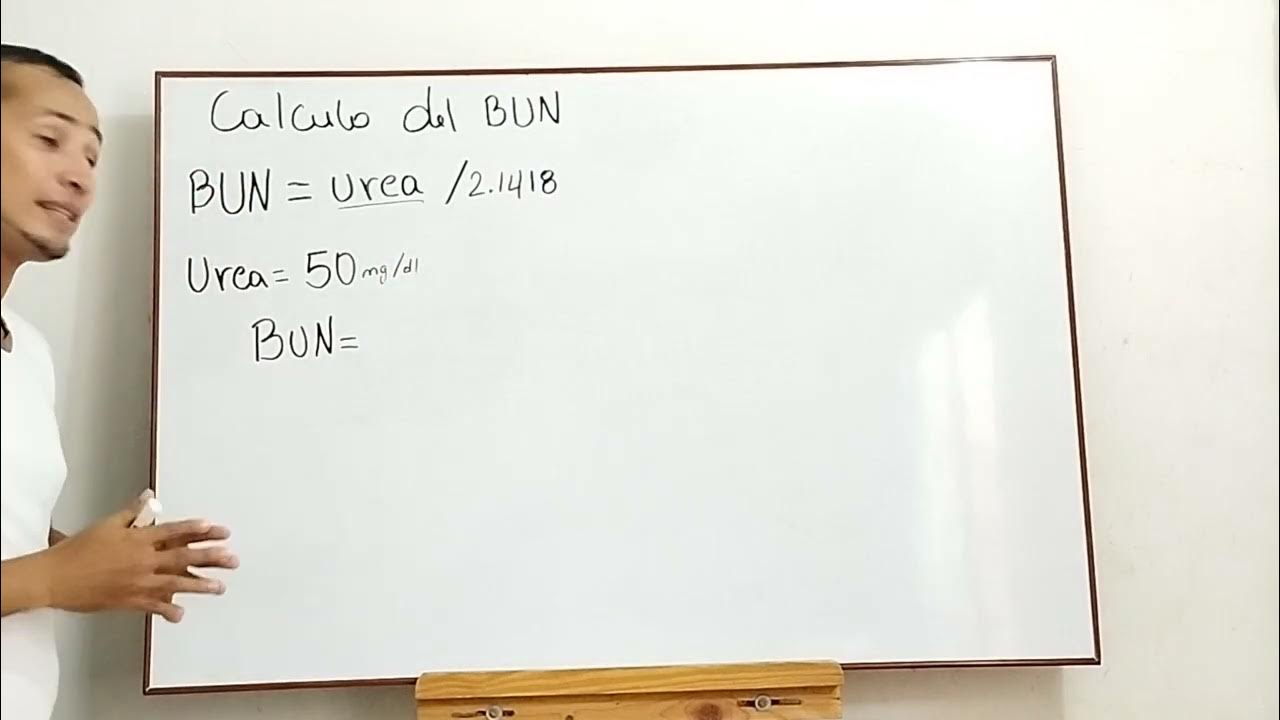 Calculo del BUN
BUN = urea /2.1418
Urea = 50 mg/dl
BUN=